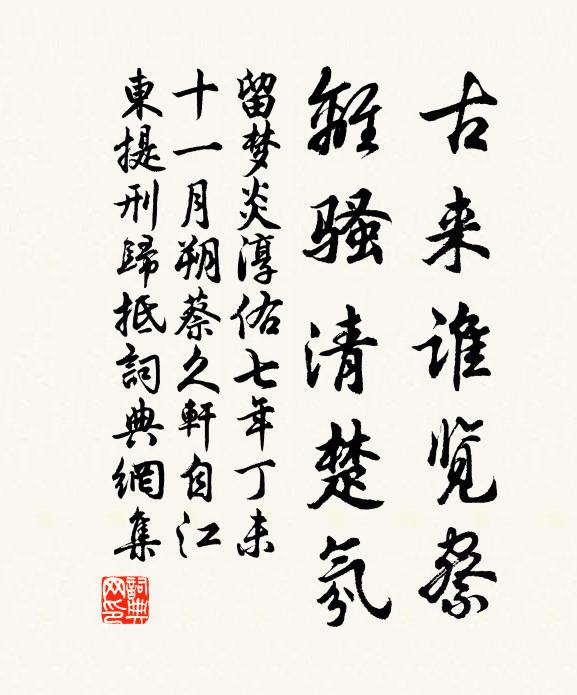 古来谁览察
離骚清楚氛
留梦炎淳佑七年丁未
十一月朔蔡久軒自江
東提刑歸抵詞典網集
詞典网印